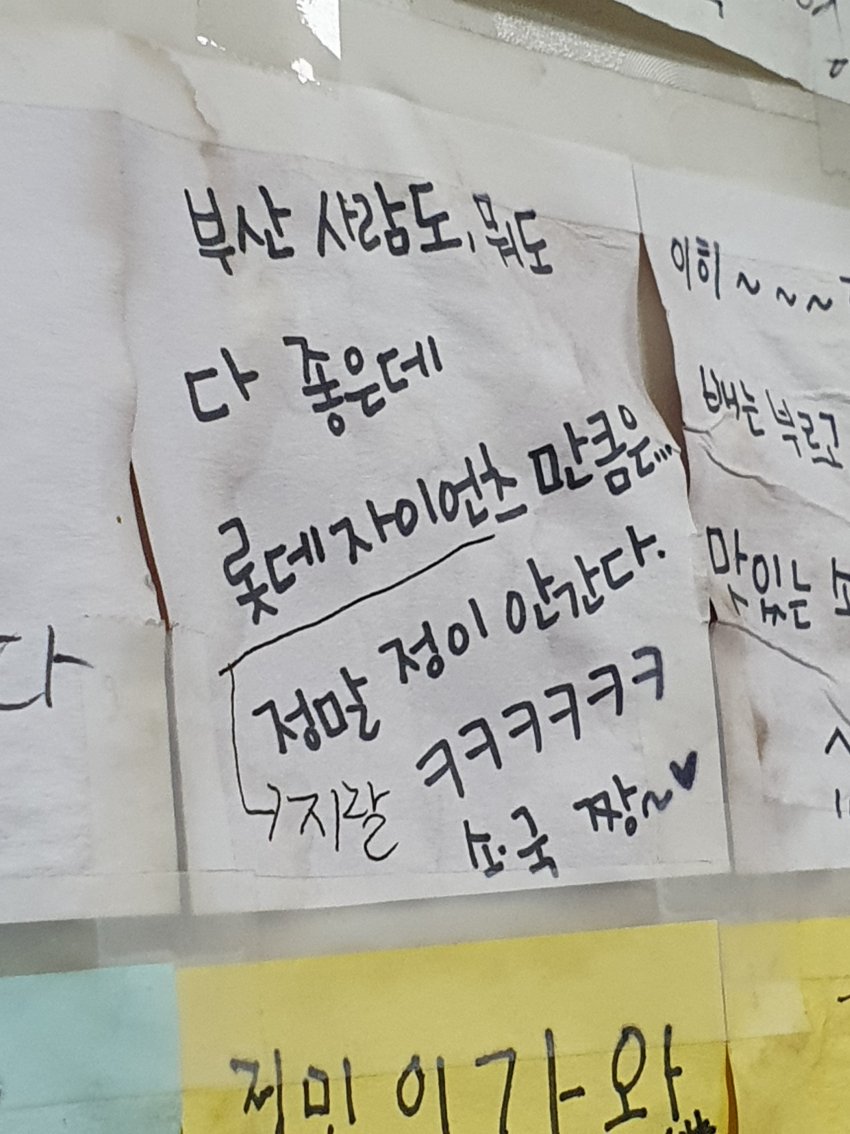 부산 사람도, 뭐도
다 좋은데
롯데자이언츠 만큼은...
정말 정이 안간다.
ㅋㅋㅋㅋㅋㅋ
지랄
소.국 짱~♥
이히~~~
배는 부르고
맛있는 소
다
정민이가 와